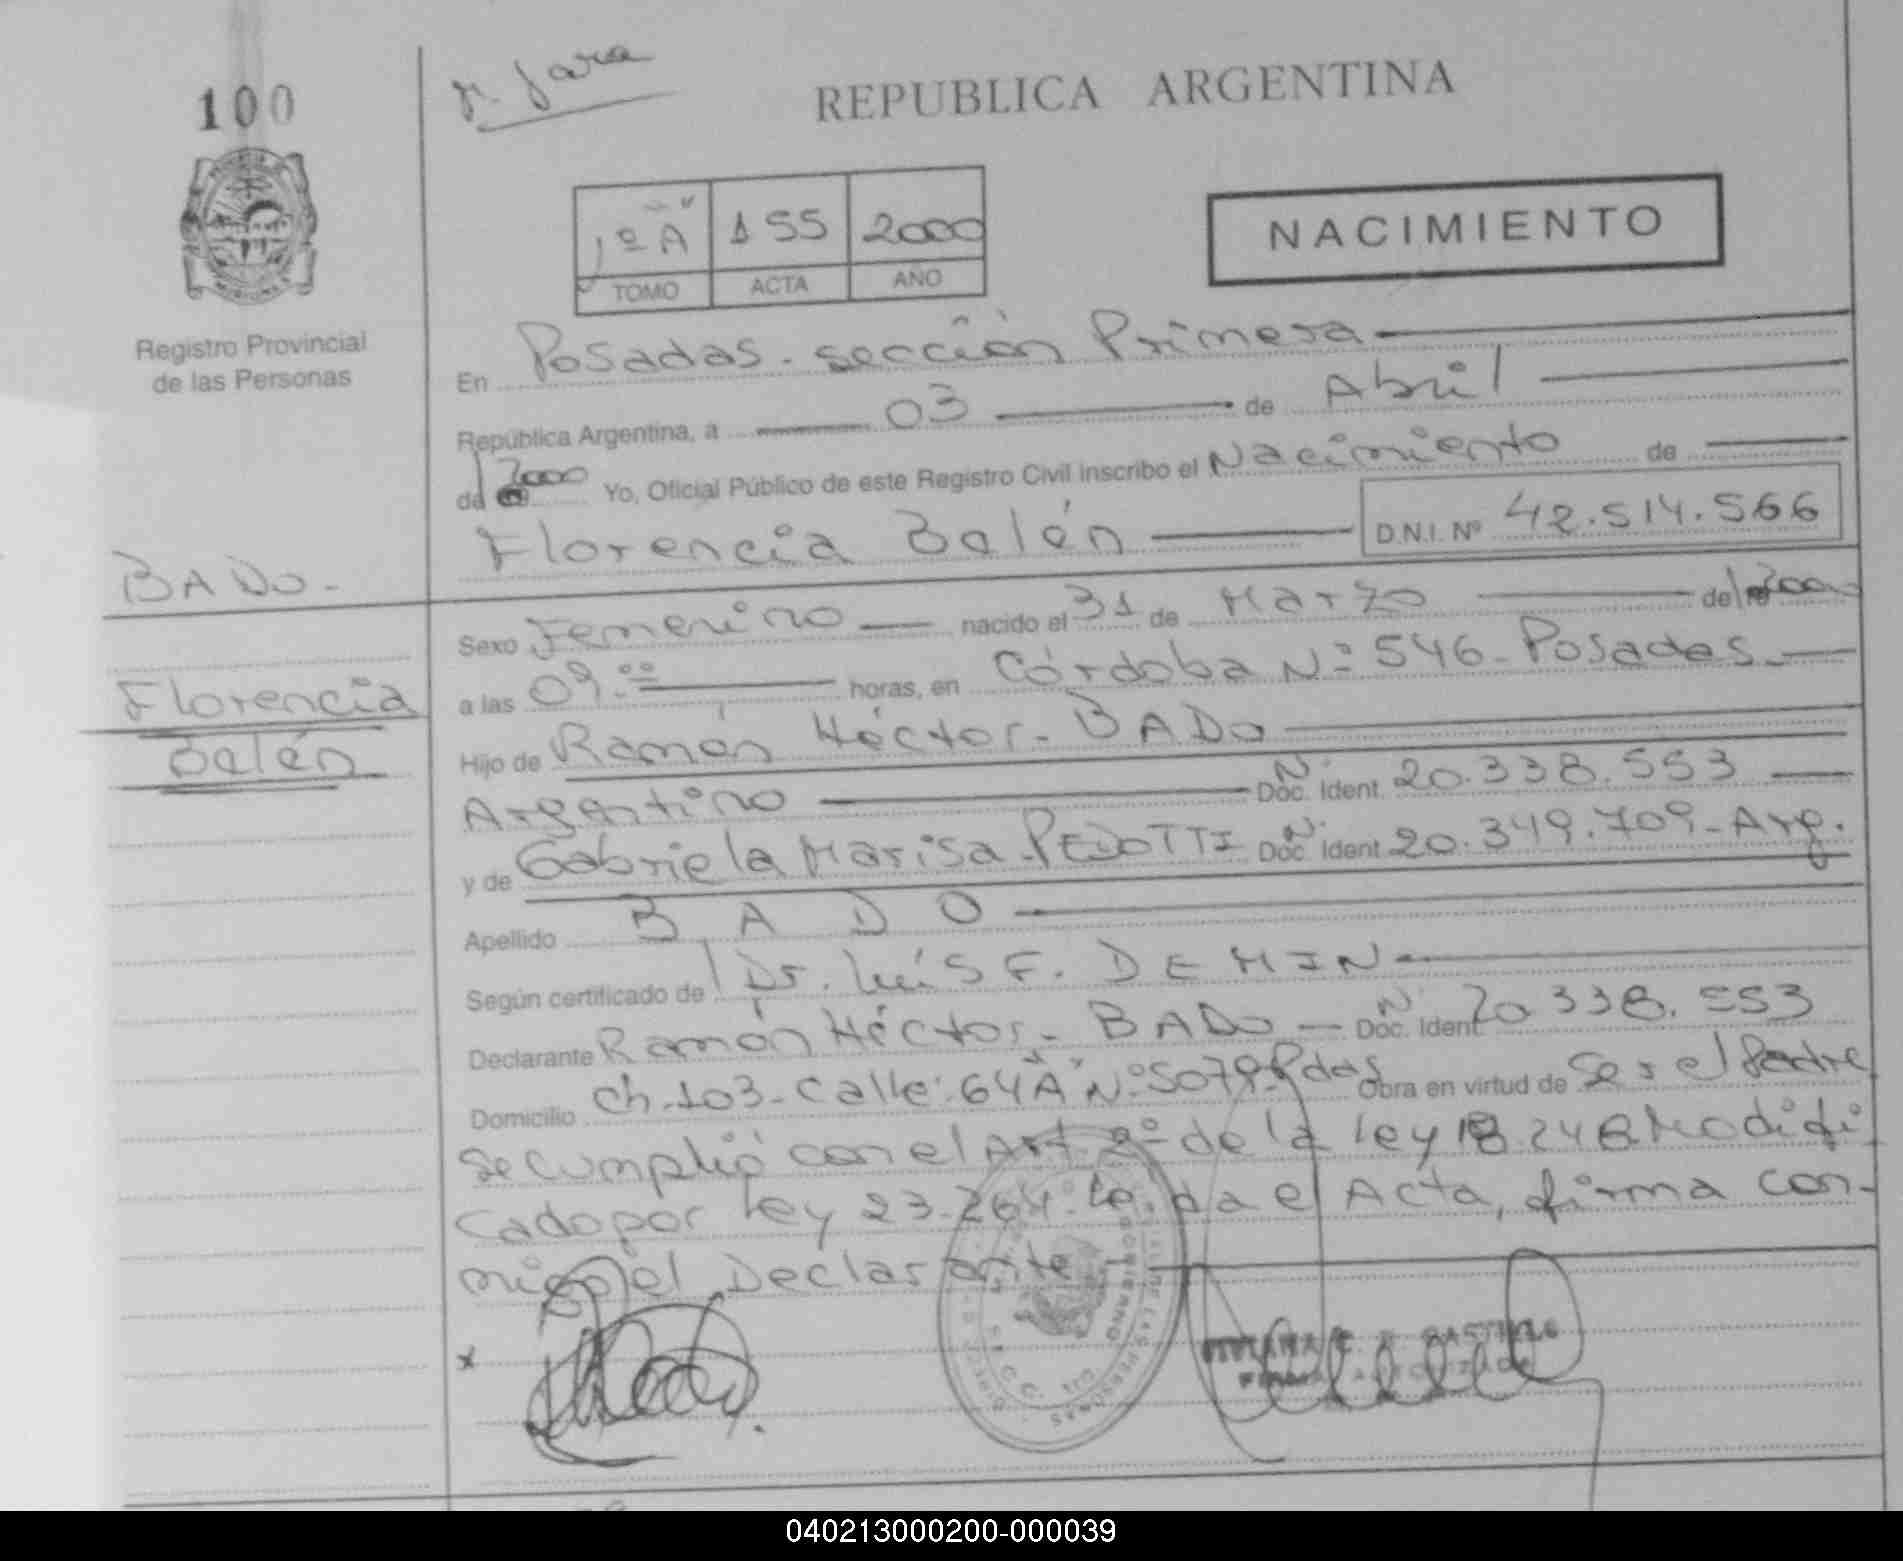 100
REPUBLICA ARGENTINA
1º "A" 155 2000
TOMO ACTA AÑO
NACIMIENTO
Registro Provincial
de las Personas
En Posadas - sección Primera
República Argentina, a 03 de Abril
de 2000 Yo, Oficial Público de este Registro Civil inscribo el Nacimiento de
Florencia Belén D.N.I. Nº 42.514.566
BADO -
Florencia
Belén
Sexo Femenino nacido el 31 de Marzo de 2000
a las 09.00 horas, en Córdoba Nº 546 - Posadas
Hijo de Ramón Héctor - BADO
Argentino Nº Doc. Ident. 20.338.553
y de Gabriela Marisa - PEDOTTI Nº Doc. Ident. 20.349.709 - Arg.
Apellido BADO
Según certificado de Dr. Luis F. DEMIN
Declarante Ramón Héctor - BADO Nº Doc. Ident. 20.338.553
Domicilio Ch. 103 - Calle: 64 "A" Nº 5079 - Pdas Obra en virtud de Ser el Padre
Se cumplió con el Art. 2º de la Ley 18.248 Modifi
cado por Ley 23.264. Leída el Acta, firma con-
migo el Declarante
040213000200-000039